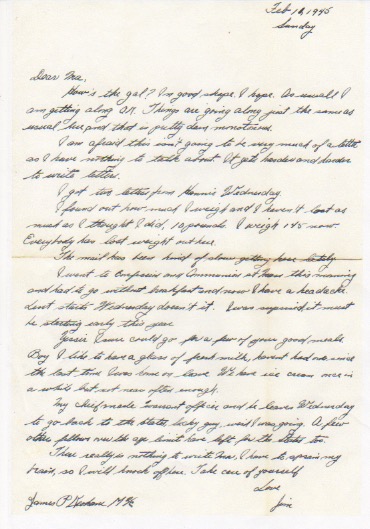 Feb 11, 1945
Sunday
Dear Ma,
How's the gal? In good shape I hope. As usual I
am getting along O.K. Things are going along just the same as
usual here and that is pretty darn monotonous.
I am afraid this isn't going to be very much of a letter
as I have nothing to talk about. It gets harder and harder
to write letters.
I got two letters from Wednesday.
I found out how much I weigh and I haven't lost as
much as I thought I did, 10 pounds. I weigh 145 now.
Everybody has lost weight out here.
The mail has been kind of slow getting here lately.
I went to Confession and Communion at Mass this morning
and had to go without breakfast and now I have a headache.
Lent starts Wednesday doesn't it. I was surprised it must
be starting early this year.
I sure could go for a few of your good meals.
Boy I like to have a glass of fresh milk, haven't had one since
the last time I was home on leave. We have ice cream once in
a while but not near often enough.
My chief made Warrant officer and he leaves Wednesday
to go back to the States, lucky guy, wish I was going. A few
other fellows over the age limit have left for the States too.
There really is nothing to write Ma, I have to strain my
brain, so I will knock off here. Take care of yourself
Love
Jim
James P.